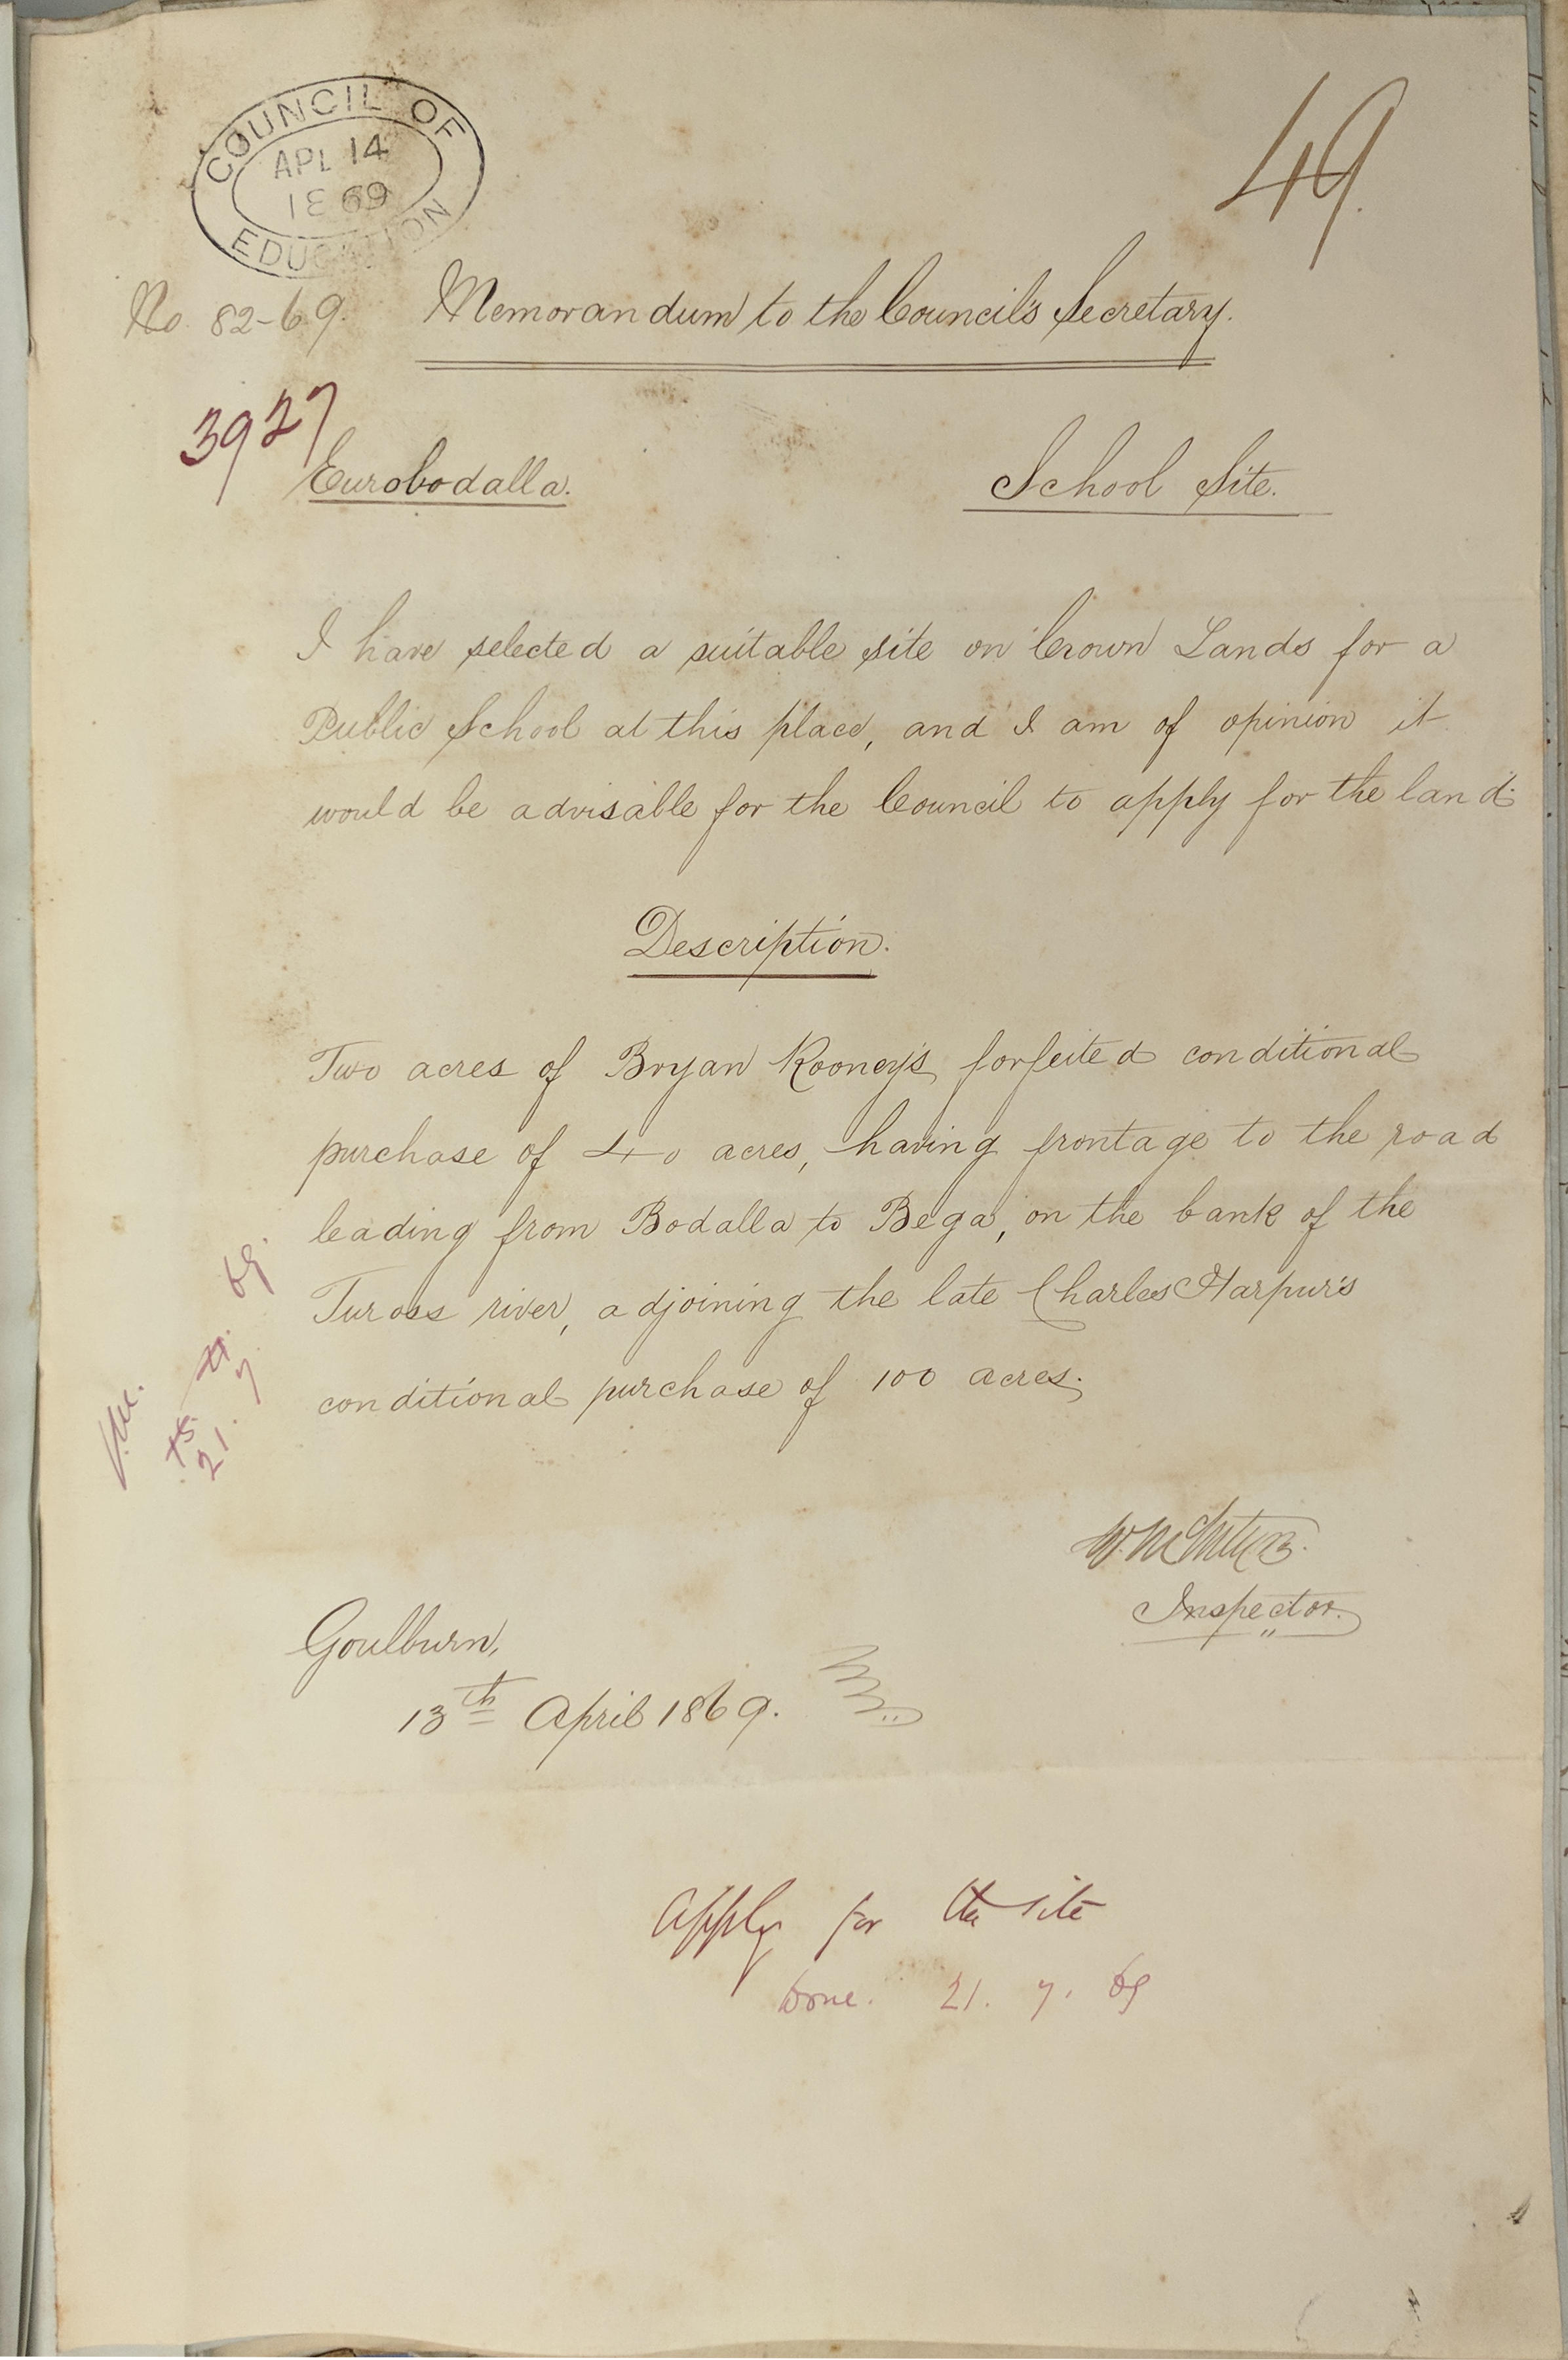 COUNCIL OF
APL 14
1869
EDUCATION
49.
No. 82-69.
Memorandum to the Council's Secretary.
3927
Eurobodalla.
School Site.
I have selected a suitable site on Crown Lands for a
Public School at this place, and I am of opinion it
would be advisable for the Council to apply for the land.
Description.
Two acres of Bryan Rooney's forfeited conditional
purchase of 40 acres, having frontage to the road
leading from Bodalla to Bega, on the bank of the
Tuross river, adjoining the late Charles Harpur's
conditional purchase of 100 acres.
21. 7. 69.
Inspector.
Goulburn,
13th April 1869.
Apply for the site
Done. 21. 7. 69